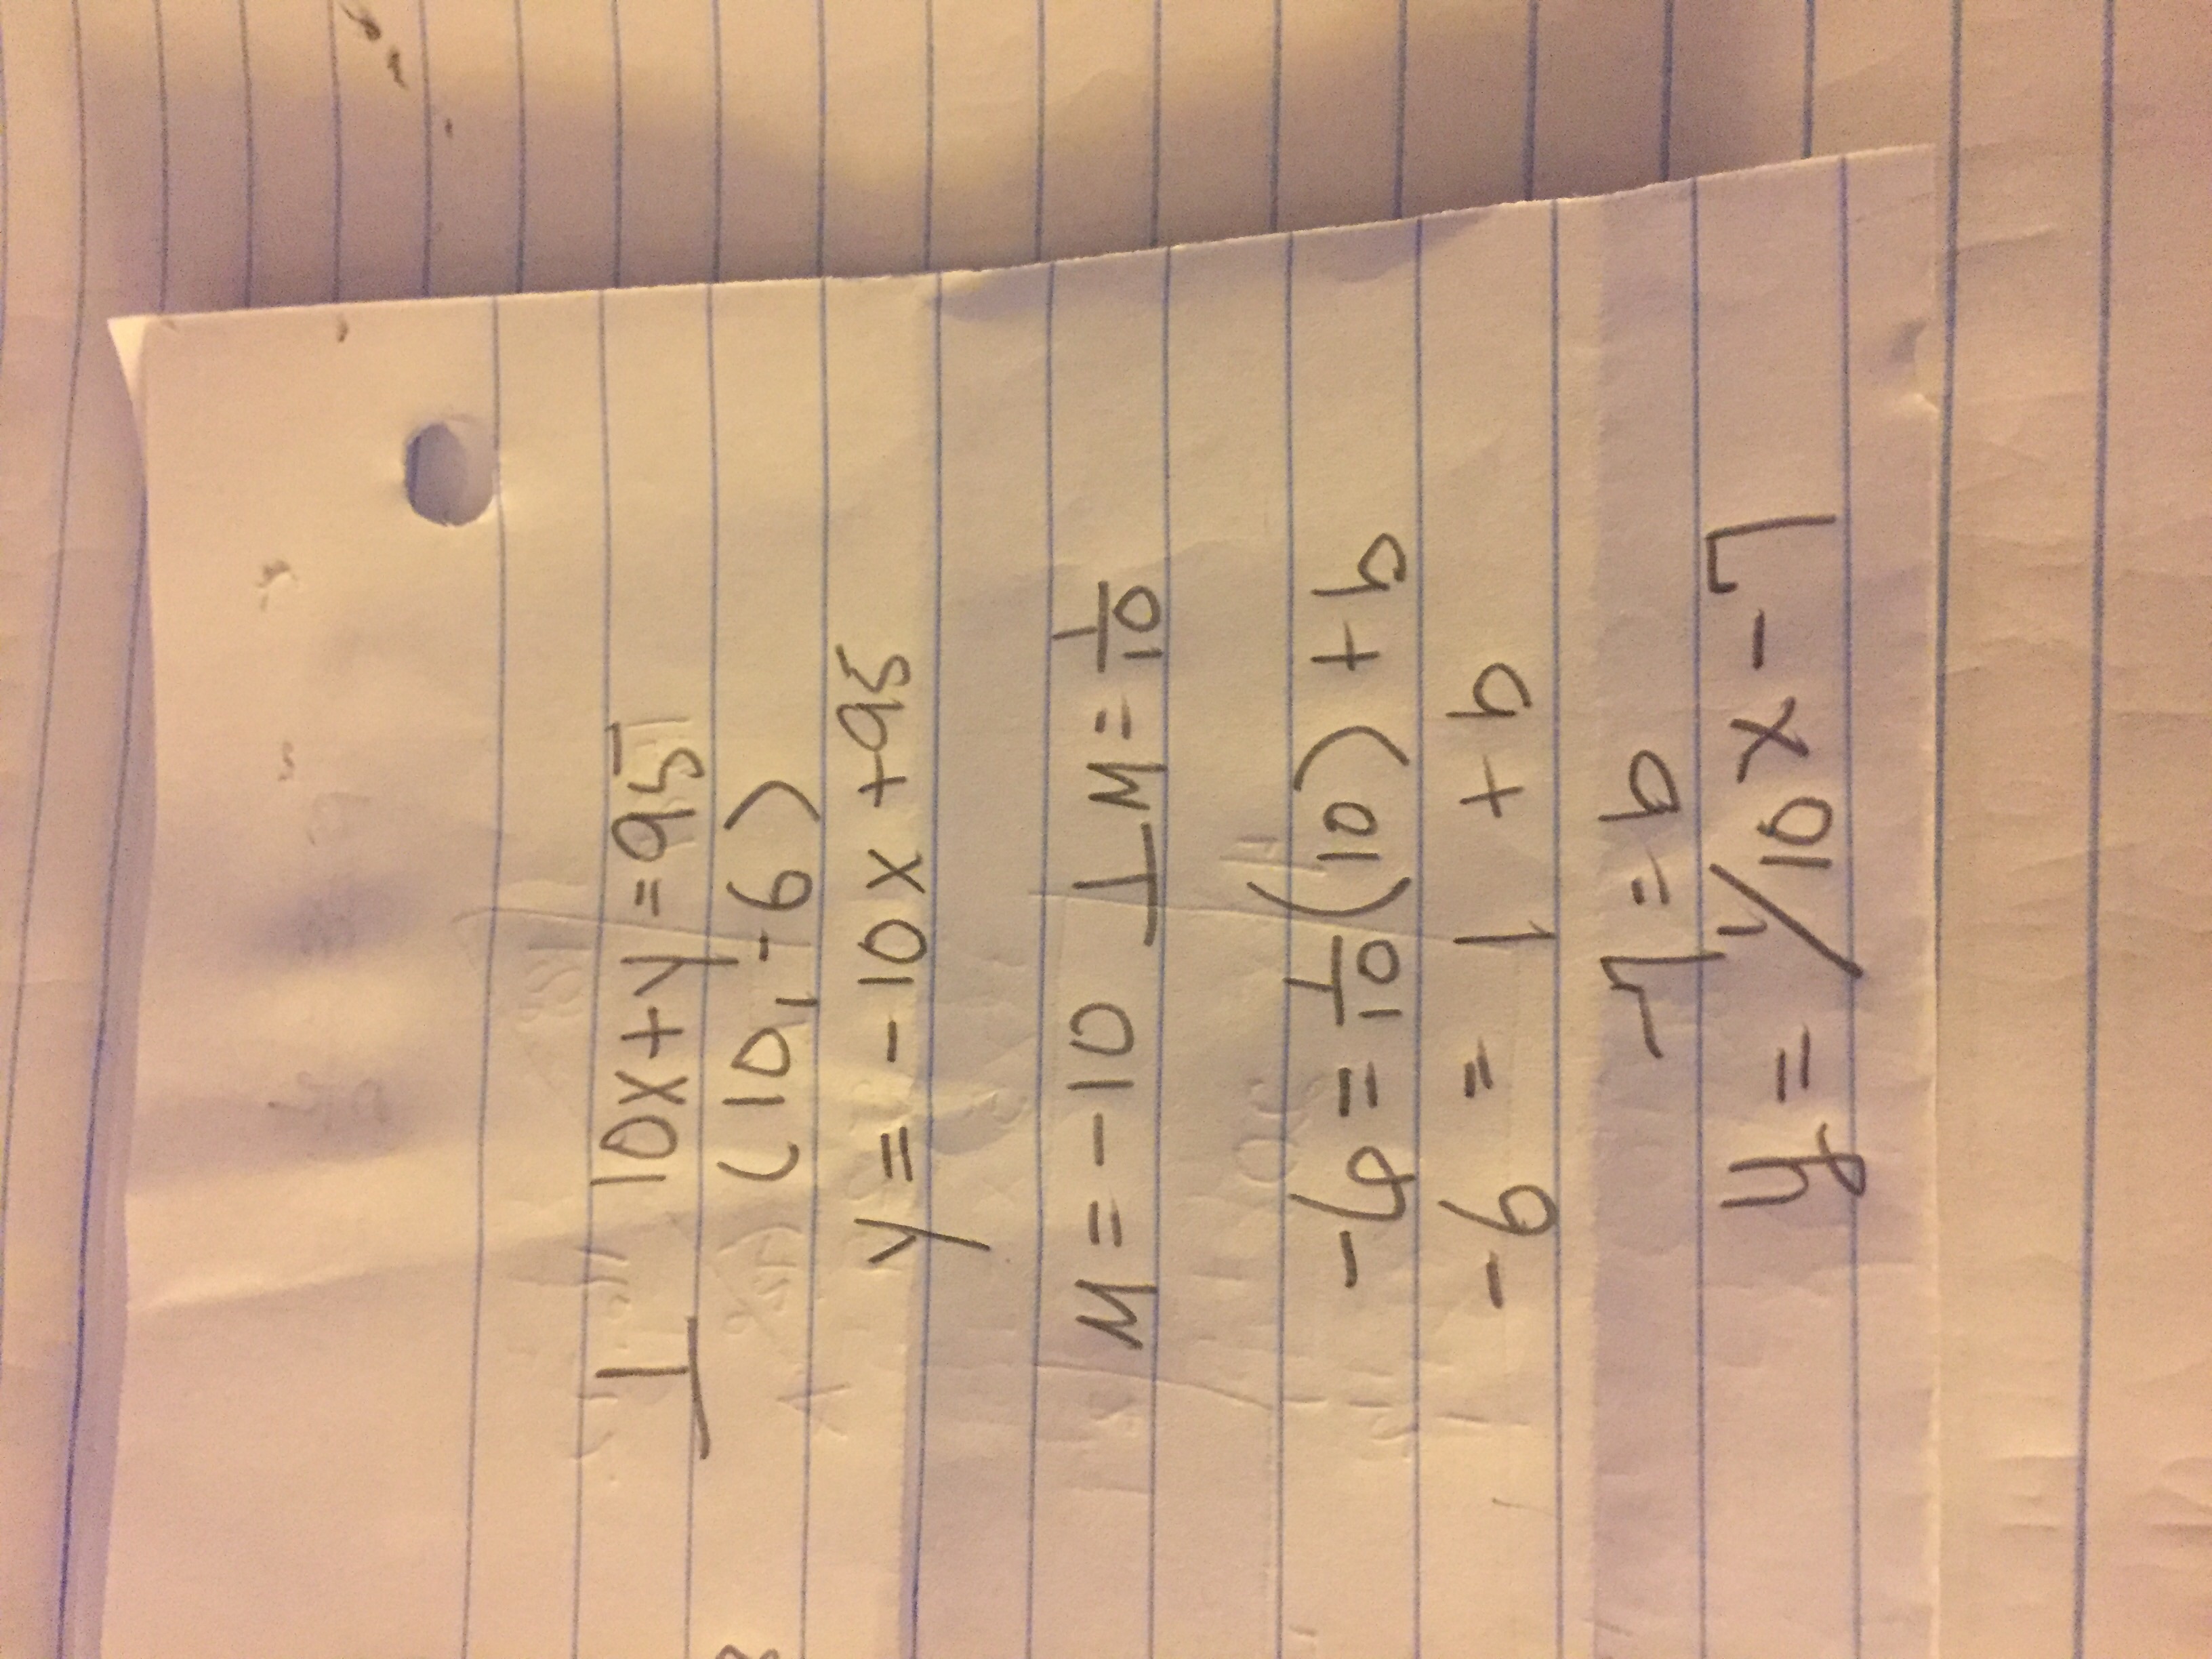 ⊥ 10x+y=95
(10,-6)
y = -10x +95
M = -10 ⊥M = 1/10
-6 = 1/10 (10) + b
-6 = 1 + b
-7 = b
y = 1/10 x - 7